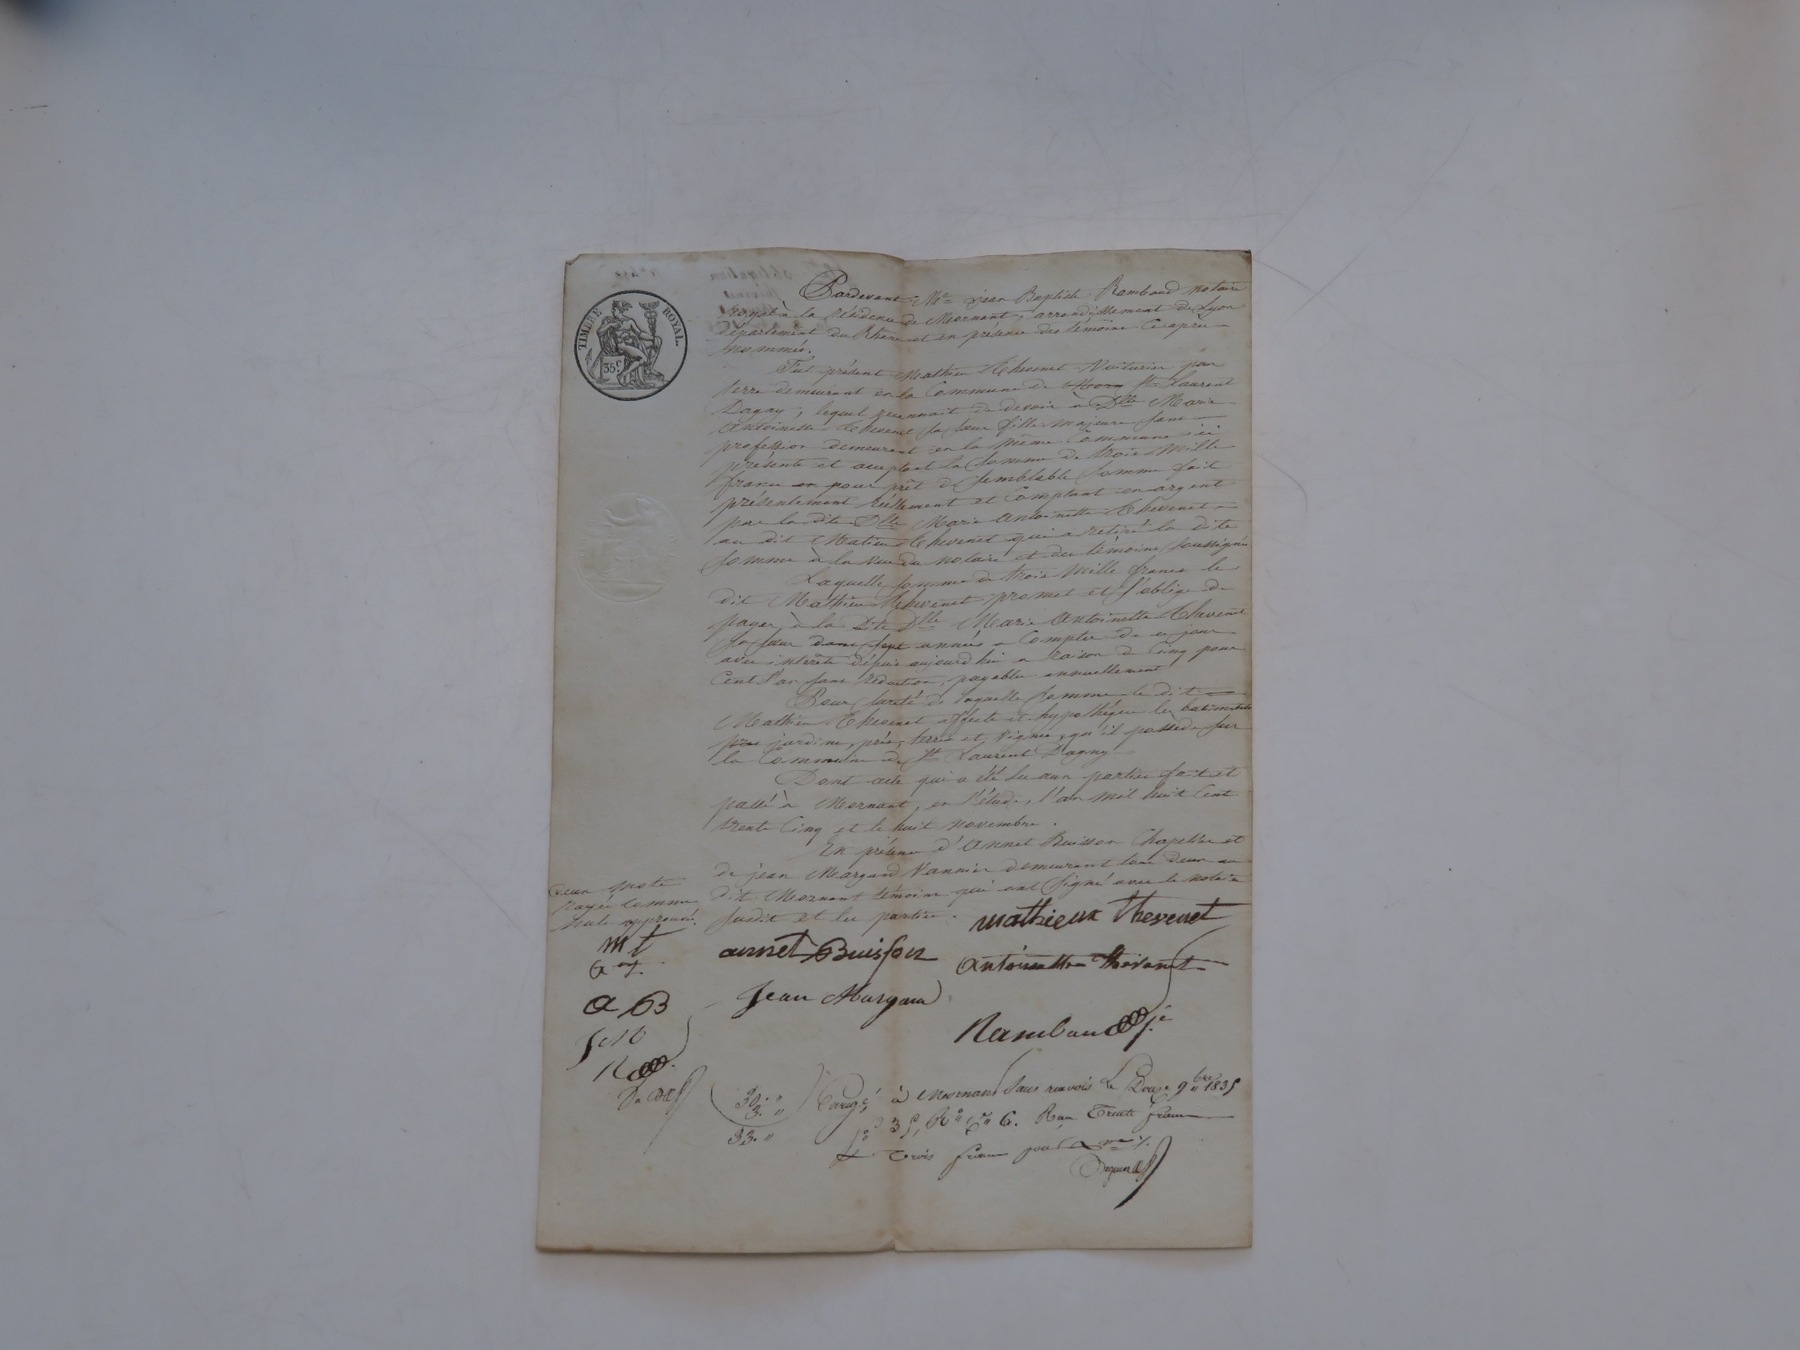 TIMBRE ROYAL
35c
Pardevant Me jean Baptiste Rambaud notaire
royal à la Résidence de Mornant, arrondissement de Lyon
département du Rhône et en présence des témoins Ci après
nommés.
Fut présent Mathieu Thevenet Voiturier par
terre demeurant en la Commune de St Laurent
Dagny, lequel reconnait de devoir à Dlle Marie
Antoinette Thevenet sa sœur fille majeure sans
profession demeurant en la même Commune ici
présente et acceptant la Somme de trois Mille
francs en pour prêt de semblable Somme fait
présentement réellement et Comptant en argent
par la dite Dlle Marie Antoinette Thevenet
au dit Mathieu Thevenet qui a retiré la dite
Somme à la vue du notaire et des témoins soussignés
Laquelle somme de trois Mille francs le
dit Mathieu Thevenet promet et s'oblige de
payer à la dite Dlle Marie Antoinette Thevenet
sa sœur dans sept années a Compter de ce jour
avec intérêts depuis aujourd'hui a raison de Cinq pour
Cent l'an sans réduction, payables annuellement
Pour sureté de laquelle Somme le dit
Mathieu Thevenet affecte et hypothèque les batiments
jardins, prés, terres et vignes, qu'il possède sur
la Commune de St Laurent Dagny
Dont acte qui a été lu aux parties fait et
passé à Mornant, en l'étude, l'an mil huit Cent
trente Cinq et le huit novembre.
En présence d'Annet Buisson Chapelier et
de jean Margand Vannier demeurant tous deux au
dit Mornant témoins qui ont signé avec le notaire
susdit et les parties.
deux mots
rayés comme
nuls approuvés.
mathieux thevenet
annet Buisson
Antoinette thevenet
Jean Margand
Rambaud
m t
a t
a B
J M
R
30. "
3. "
33. "
Enregé à Mornant sans renvois le Douze 9bre 1835
fo 35, Ro Ce 6. Reçu Trente francs
et Trois francs pour Dme